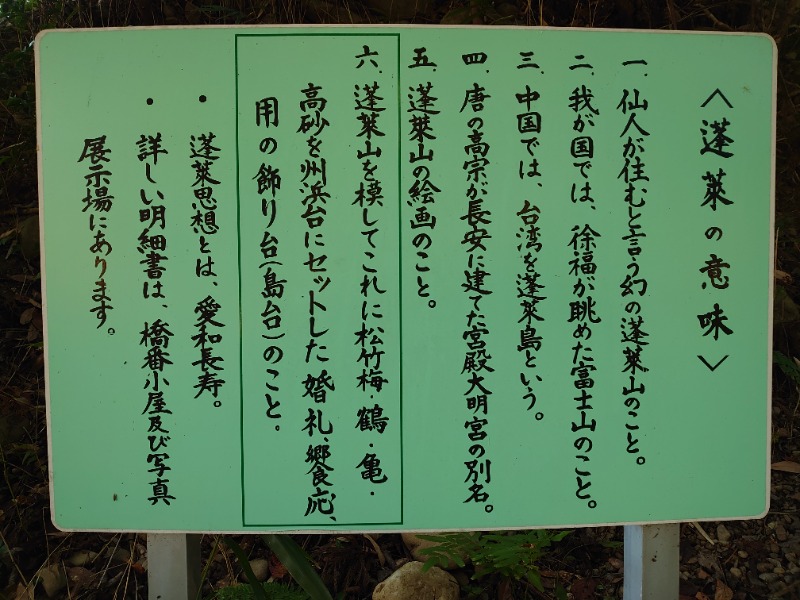 〈蓬萊の意味〉
一、仙人が住むと言う幻の蓬萊山のこと。
二、我が国では、徐福が眺めた富士山のこと。
三、中国では、台湾を蓬萊島という。
四、唐の高宗が長安に建てた宮殿大明宮の別名。
五、蓬萊山の絵画のこと。
六、蓬萊山を模してこれに松竹梅・鶴・亀・
高砂を州浜台にセットした婚礼、饗応、
用の飾り台(島台)のこと。
・蓬萊思想とは、愛和長寿。
・詳しい明細書は、橋番小屋及び写真
展示場にあります。